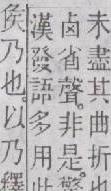 未盡其曲折也
卤省聲。非是。
漢發語多用此
矦乃也。以乃釋